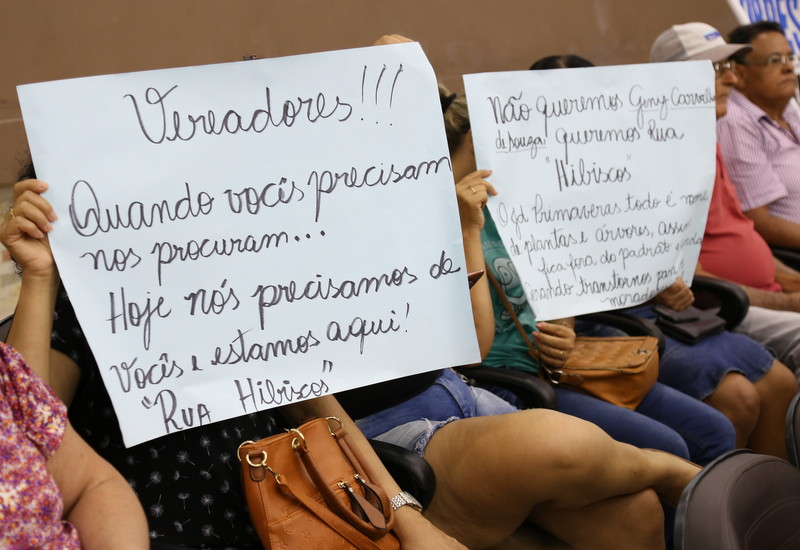 Vereadores!!!
Quando vocês precisam
nos procuram...
Hoje nós precisamos de
vocês e estamos aqui!
"Rua Hibiscos"
Não queremos Geny Carvalho
de Souza! queremos Rua
"Hibiscos"
O Jd Primaveras todo é nome
de plantas e árvores, assim
fica fora do padrão e ainda
causando transtornos para
moradores